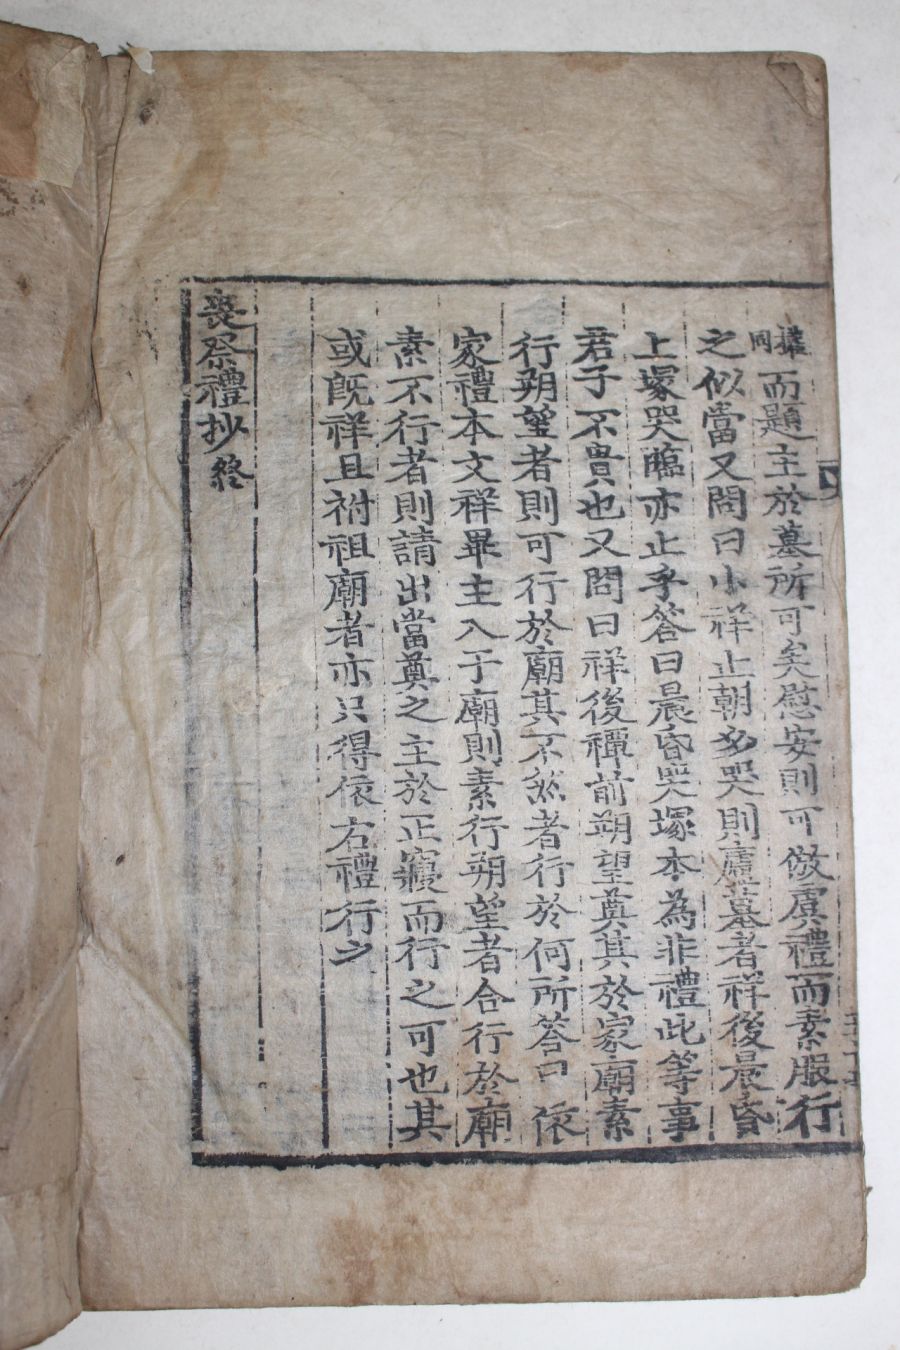 而題主於墓所可矣慰安則可倣虞禮而素服行
之似當又問曰小祥止朝夕哭則廬墓者祥後晨昏
上塚哭臨亦止乎答曰晨昏哭塚本為非禮此等事
君子不貴也又問曰祥後禫前朔望奠其於家廟素
行朔望者則可行於廟其不然者行於何所答曰依
家禮本文祥畢主入于廟則素行朔望者合行於廟
素不行者則請出當奠之主於正寢而行之可也其
或既祥且祔祖廟者亦只得依右禮行之
喪祭禮抄終